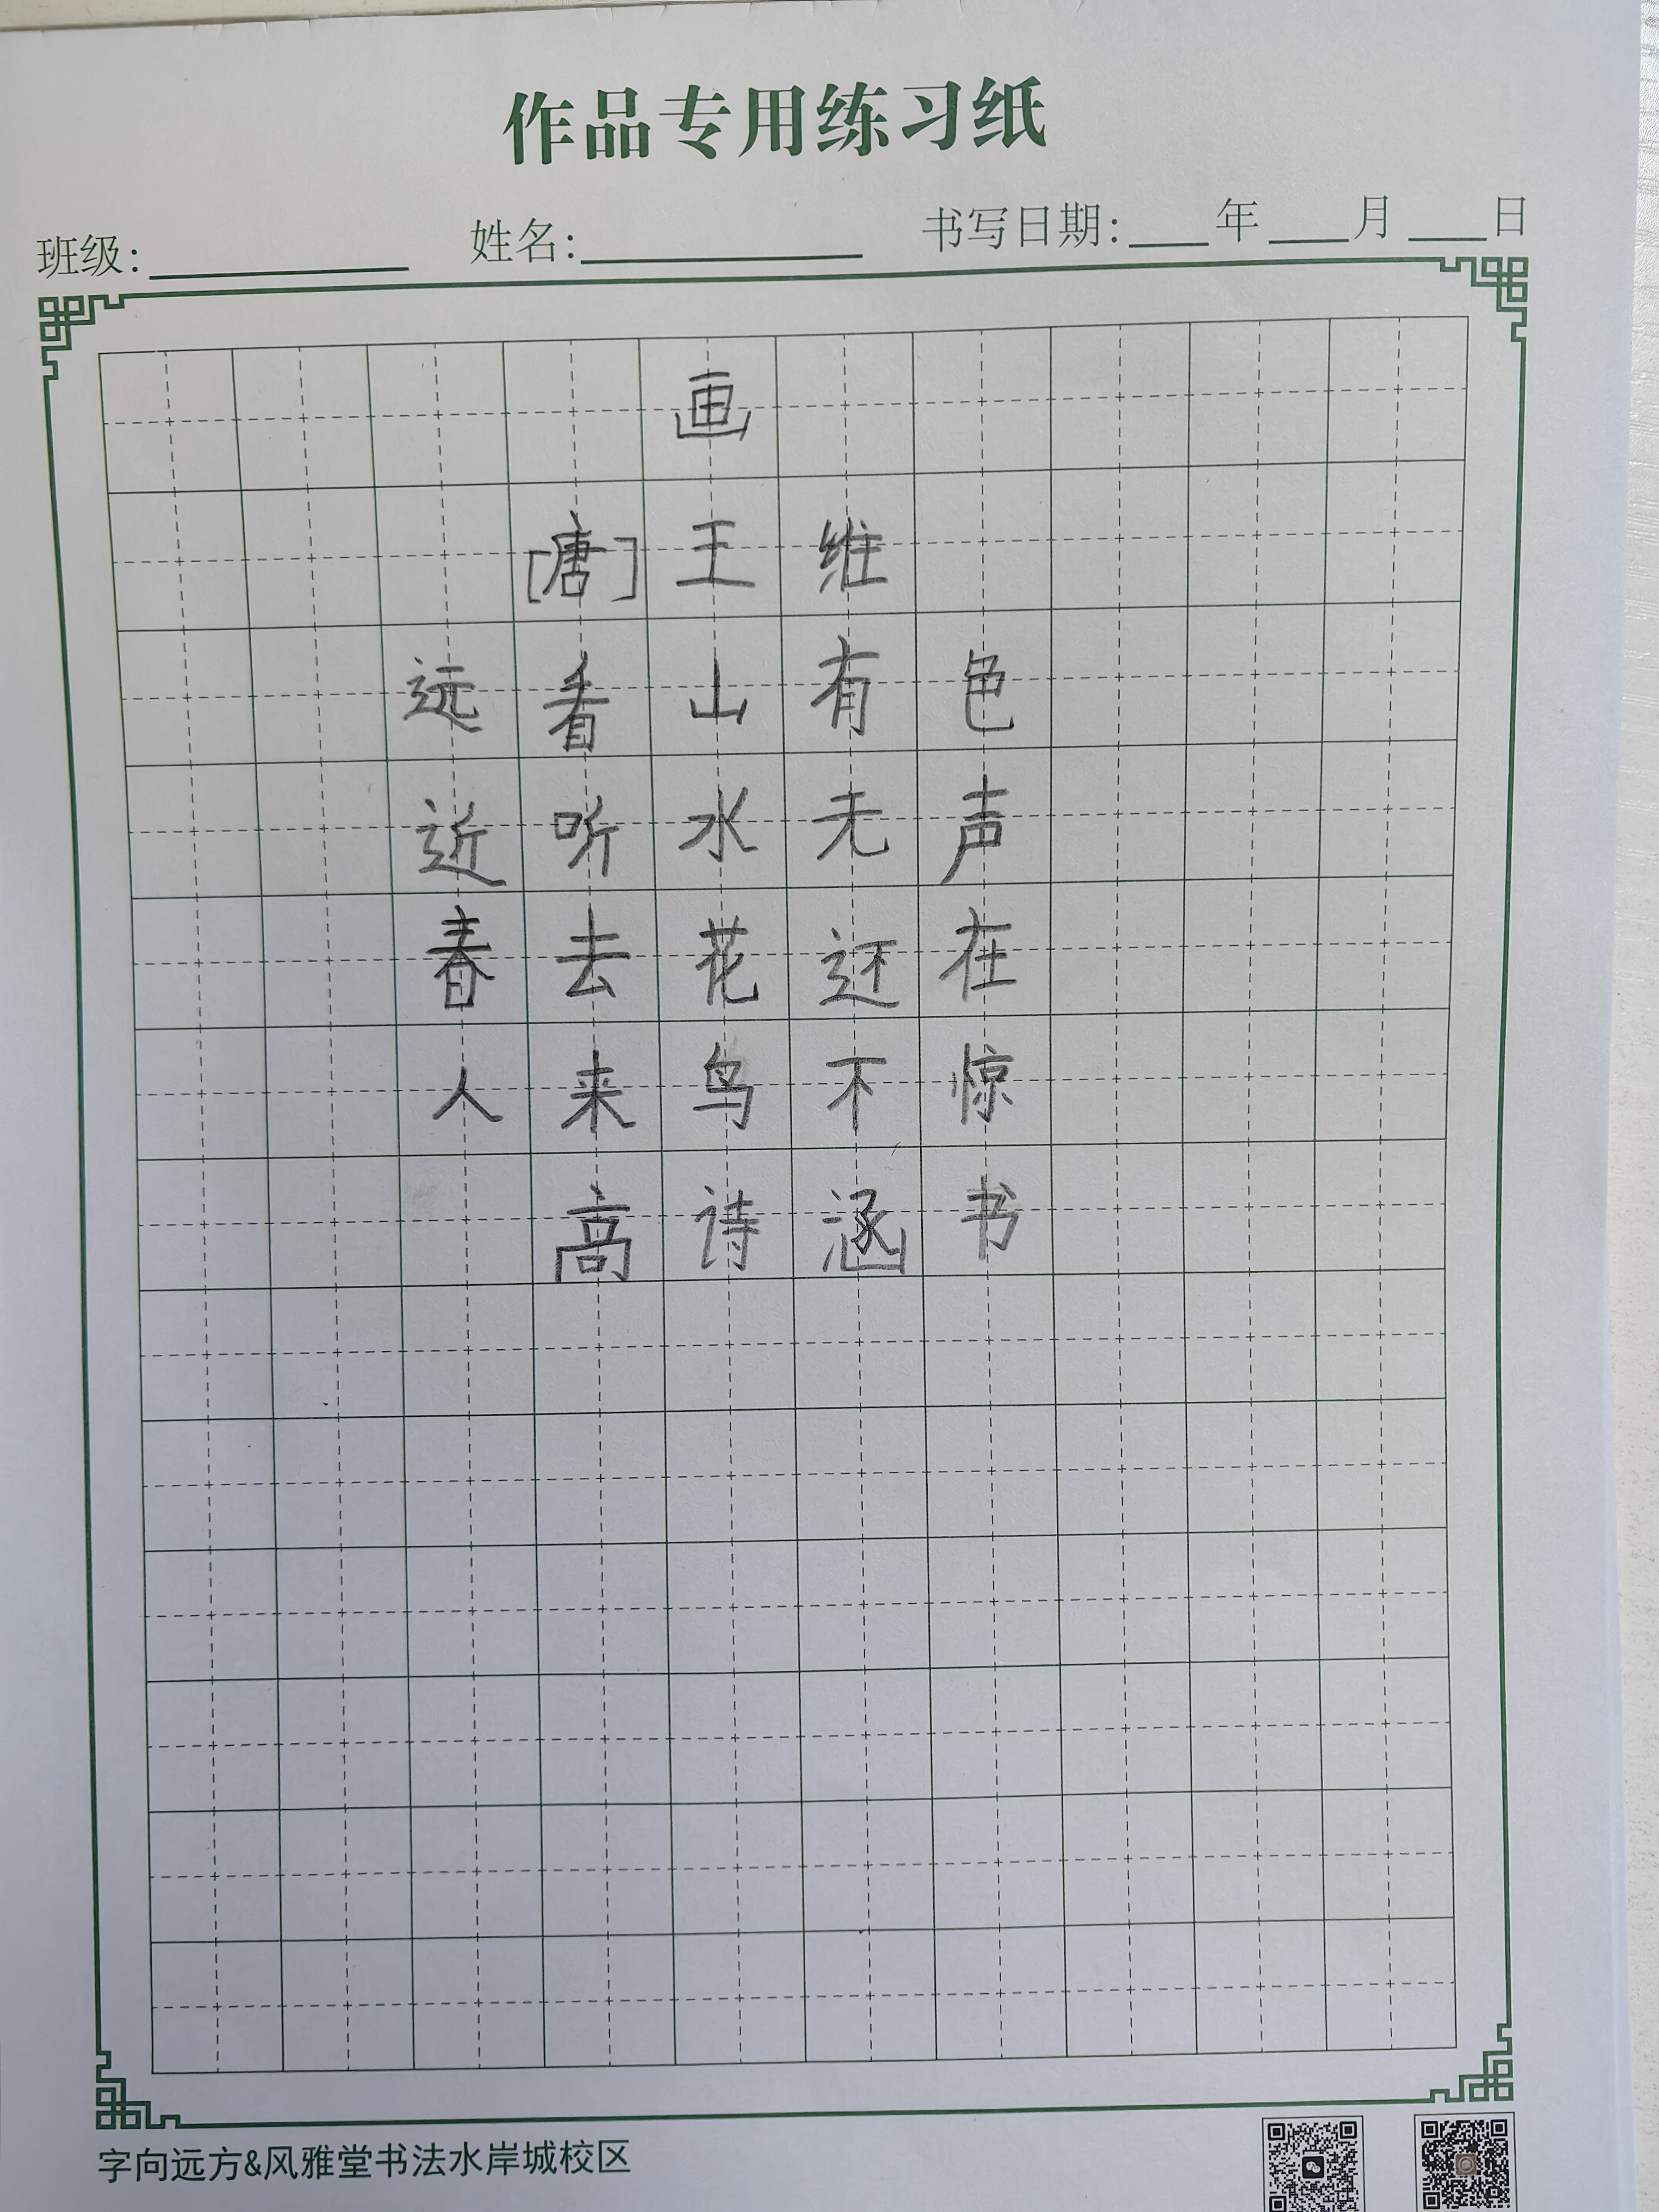 作品专用练习纸
班级: 姓名: 书写日期: 年 月 日
画
[唐]王维
远看山有色
近听水无声
春去花还在
人来鸟不惊
高诗涵书
字向远方&风雅堂书法水岸城校区